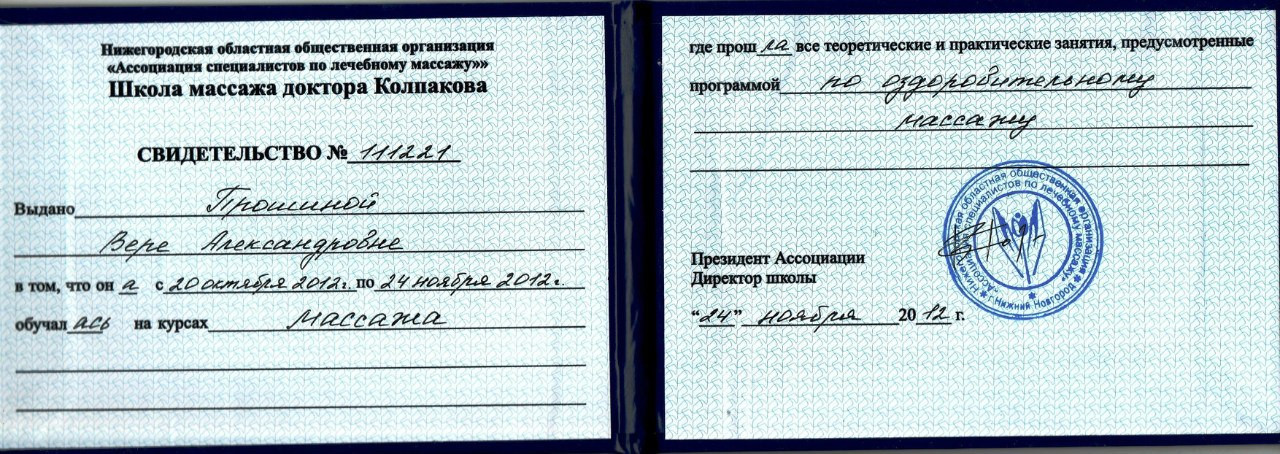 Нижегородская областная общественная организация
«Ассоциация специалистов по лечебному массажу»»
Школа массажа доктора Колпакова
СВИДЕТЕЛЬСТВО № 111221
Выдано Трошиной
Вере Александровне
в том, что он а с 20 октября 2012 г. по 24 ноября 2012 г.
обучал ась на курсах массажа
где прош ла все теоретические и практические занятия, предусмотренные
программой по оздоробительному
массажу
Президент Ассоциации
Директор школы
“24” ноября 2012 г.
Нижегородская областная общественная организация
«Ассоциация специалистов по лечебному массажу»
г. Нижний Новгород